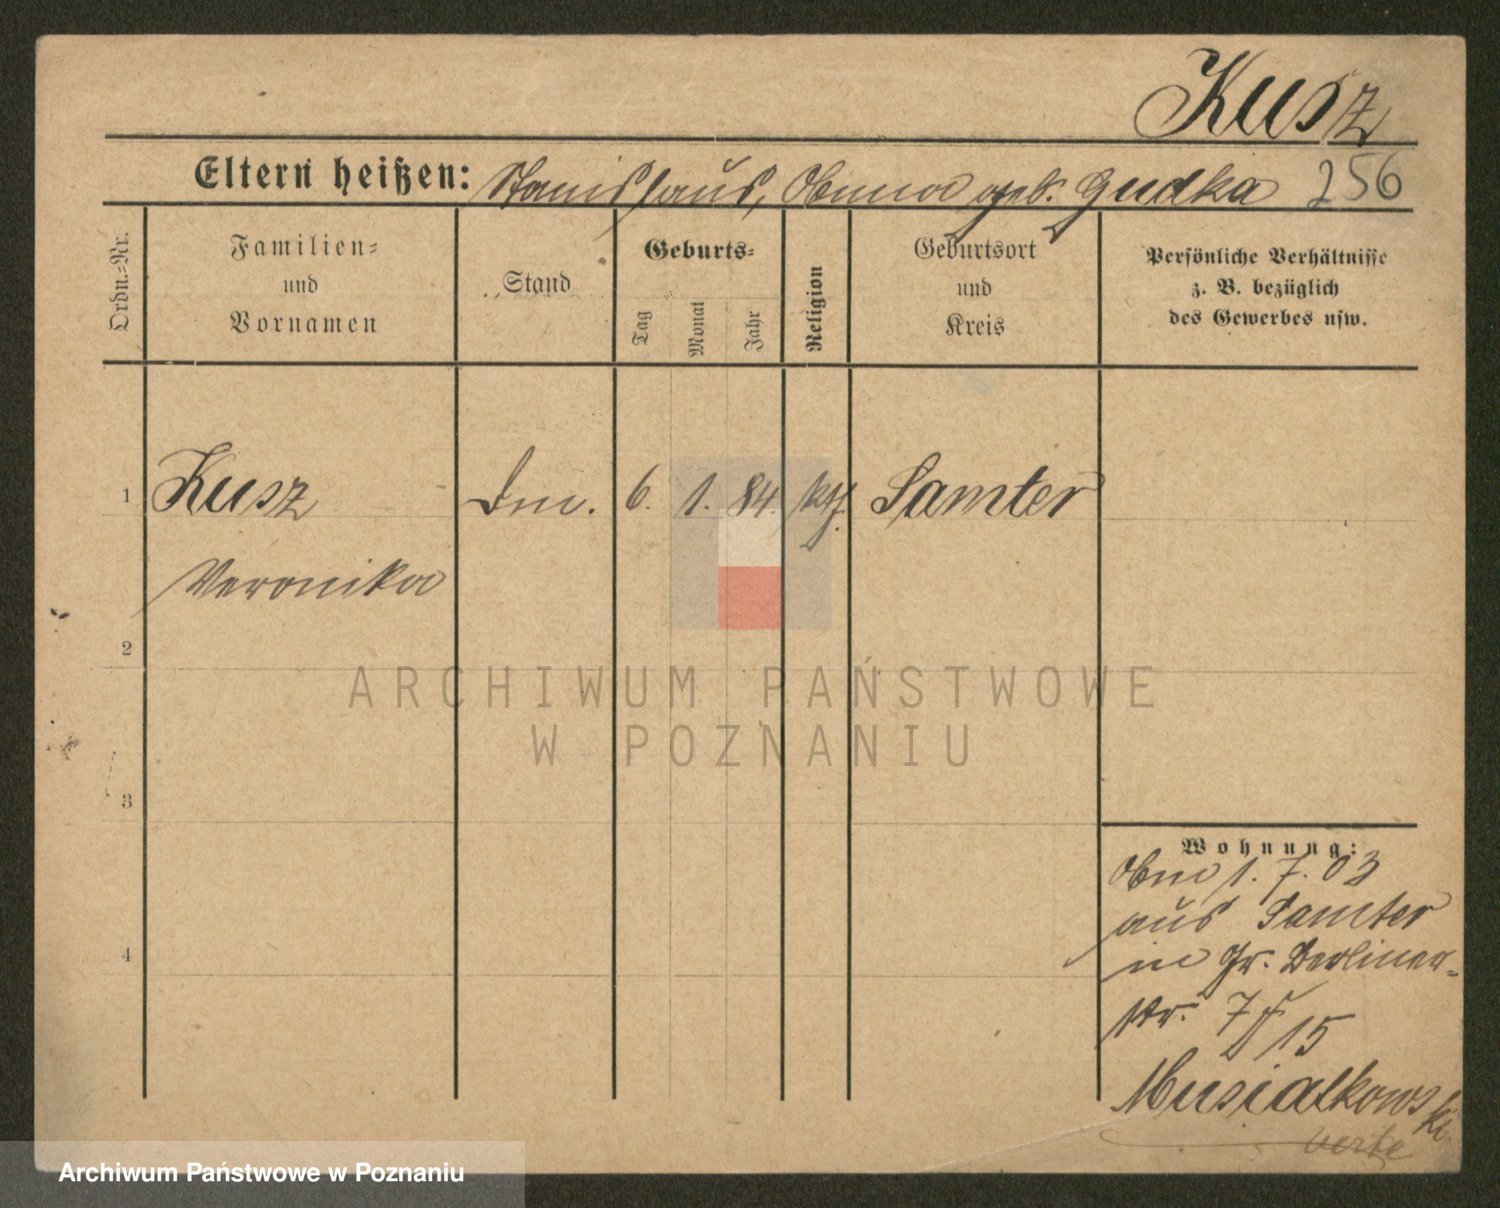 Kusz
Eltern heißen: Stanislaus, Anna geb. Gudka 256
Ordn.=Nr.
Familien=
und
Vornamen
Stand
Geburts=
Tag
Monat
Jahr
Religion
Geburtsort
und
Kreis
Persönliche Verhältnisse
z. B. bezüglich
des Gewerbes usw.
1 Kusz 6. 1. 84. kth. Samter
Veronika
2
3
4
ARCHIWUM PAŃSTWOWE
W POZNANIU
Wohnung:
1. 7. 03
aus Samter
in Gr. Berliner=
str. 7 15
Musialkowski
verte
Archiwum Państwowe w Poznaniu